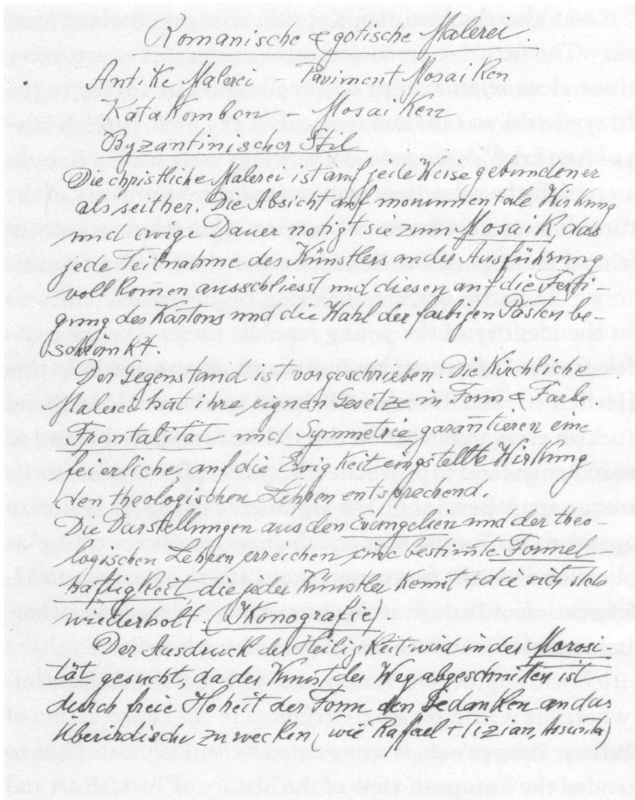 Romanische & gotische Malerei.
Antike Malerei Paviment Mosaiken
Katakomben – Mosaiken
Byzantinischer Stil
Die christliche Malerei ist auf jede Weise gebundener
als seither. Die Absicht auf monumentale Wirkung
und ewige Dauer nötigt sie zum Mosaik, das
jede Teilnahme des Künstlers an der Ausführung
vollkomen ausschliesst und diesen auf die Ferti-
gung des Kartons und die Wahl der farbigen Pasten be-
schränkt.
Der Gegenstand ist vorgeschrieben. Die Kirchliche
Malerei hat ihre eignen Gesetze in Form & Farbe
Frontalität und Symmetrie garantieren eine
feierliche auf die Ewigkeit eingstellte Wirkung
den theologischen Lehren entsprechend.
Die Darstellungen aus den Evangelien und der theo-
logischen Lehren erreichen eine bestimte Formel-
haftigkeit die jeder Künstler kennt + die sich stets
wiederholt (Ikonografie).
Der Ausdruck der Heiligkeit wird in der Morosi
tät gesucht, da der Kunst der Weg abgeschnitten ist
durch freie Hoheit der Form den Gedanken an das
Überirdische zu wecken (wie Raffael + Tizian, Assunta)